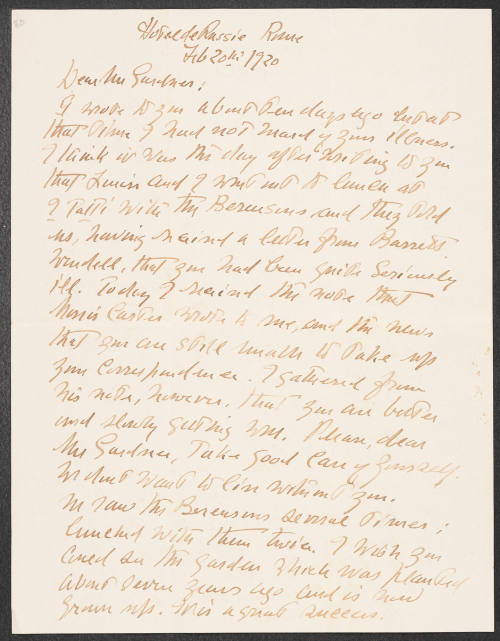 Hotel de Russie Rome
Feb 20th 1920
Dear Mrs Gardner:
I wrote to you about ten days ago but at
that time I had not heard of your illness.
I think it was the day after writing to you
that Louise and I went out to lunch at
I Tatti with the Berensons, and they told
us, having received a letter from Barrett
Wendell, that you had been quite seriously
ill. Today I received the note that
Morris Carter wrote to me, and the news
that you are still unable to take up
your correspondence. I gathered from
his note, however, that you are better
and slowly getting well. Please, dear
Mrs Gardner, take good care of yourself.
We don't want to live without you.
We saw the Berensons several times;
lunched with them twice. I wish you
could see the garden which was planted
about seven years ago and is now
grown up. It is a great success.